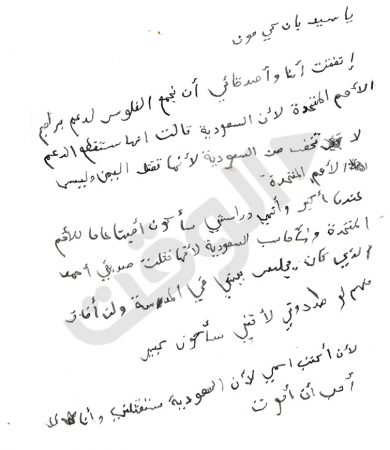 يا سيد بان كي مون
إتفقت أنا وأصدقائي أن نجمع الفلوس لدعم برامج
الأمم المتحدة لأن السعودية قالت انها ستقطع الدعم
لا تخف من السعودية لأنها تقتل اليمن وليس
الأمم المتحدة
عندما أكبر وأنهي دراستي سأكون أمينا عاما للأمم
المتحدة وسأحاسب السعودية لأنها قتلت صديقي أحمد
الذي كان يجلس بجنبي في المدرسة ولن أخاف
منهم لو هددوني لأنني سأكون كبير
لن أكتب اسمي لأن السعودية ستقتلني وأنا لا
أحب أن أموت
الوقت